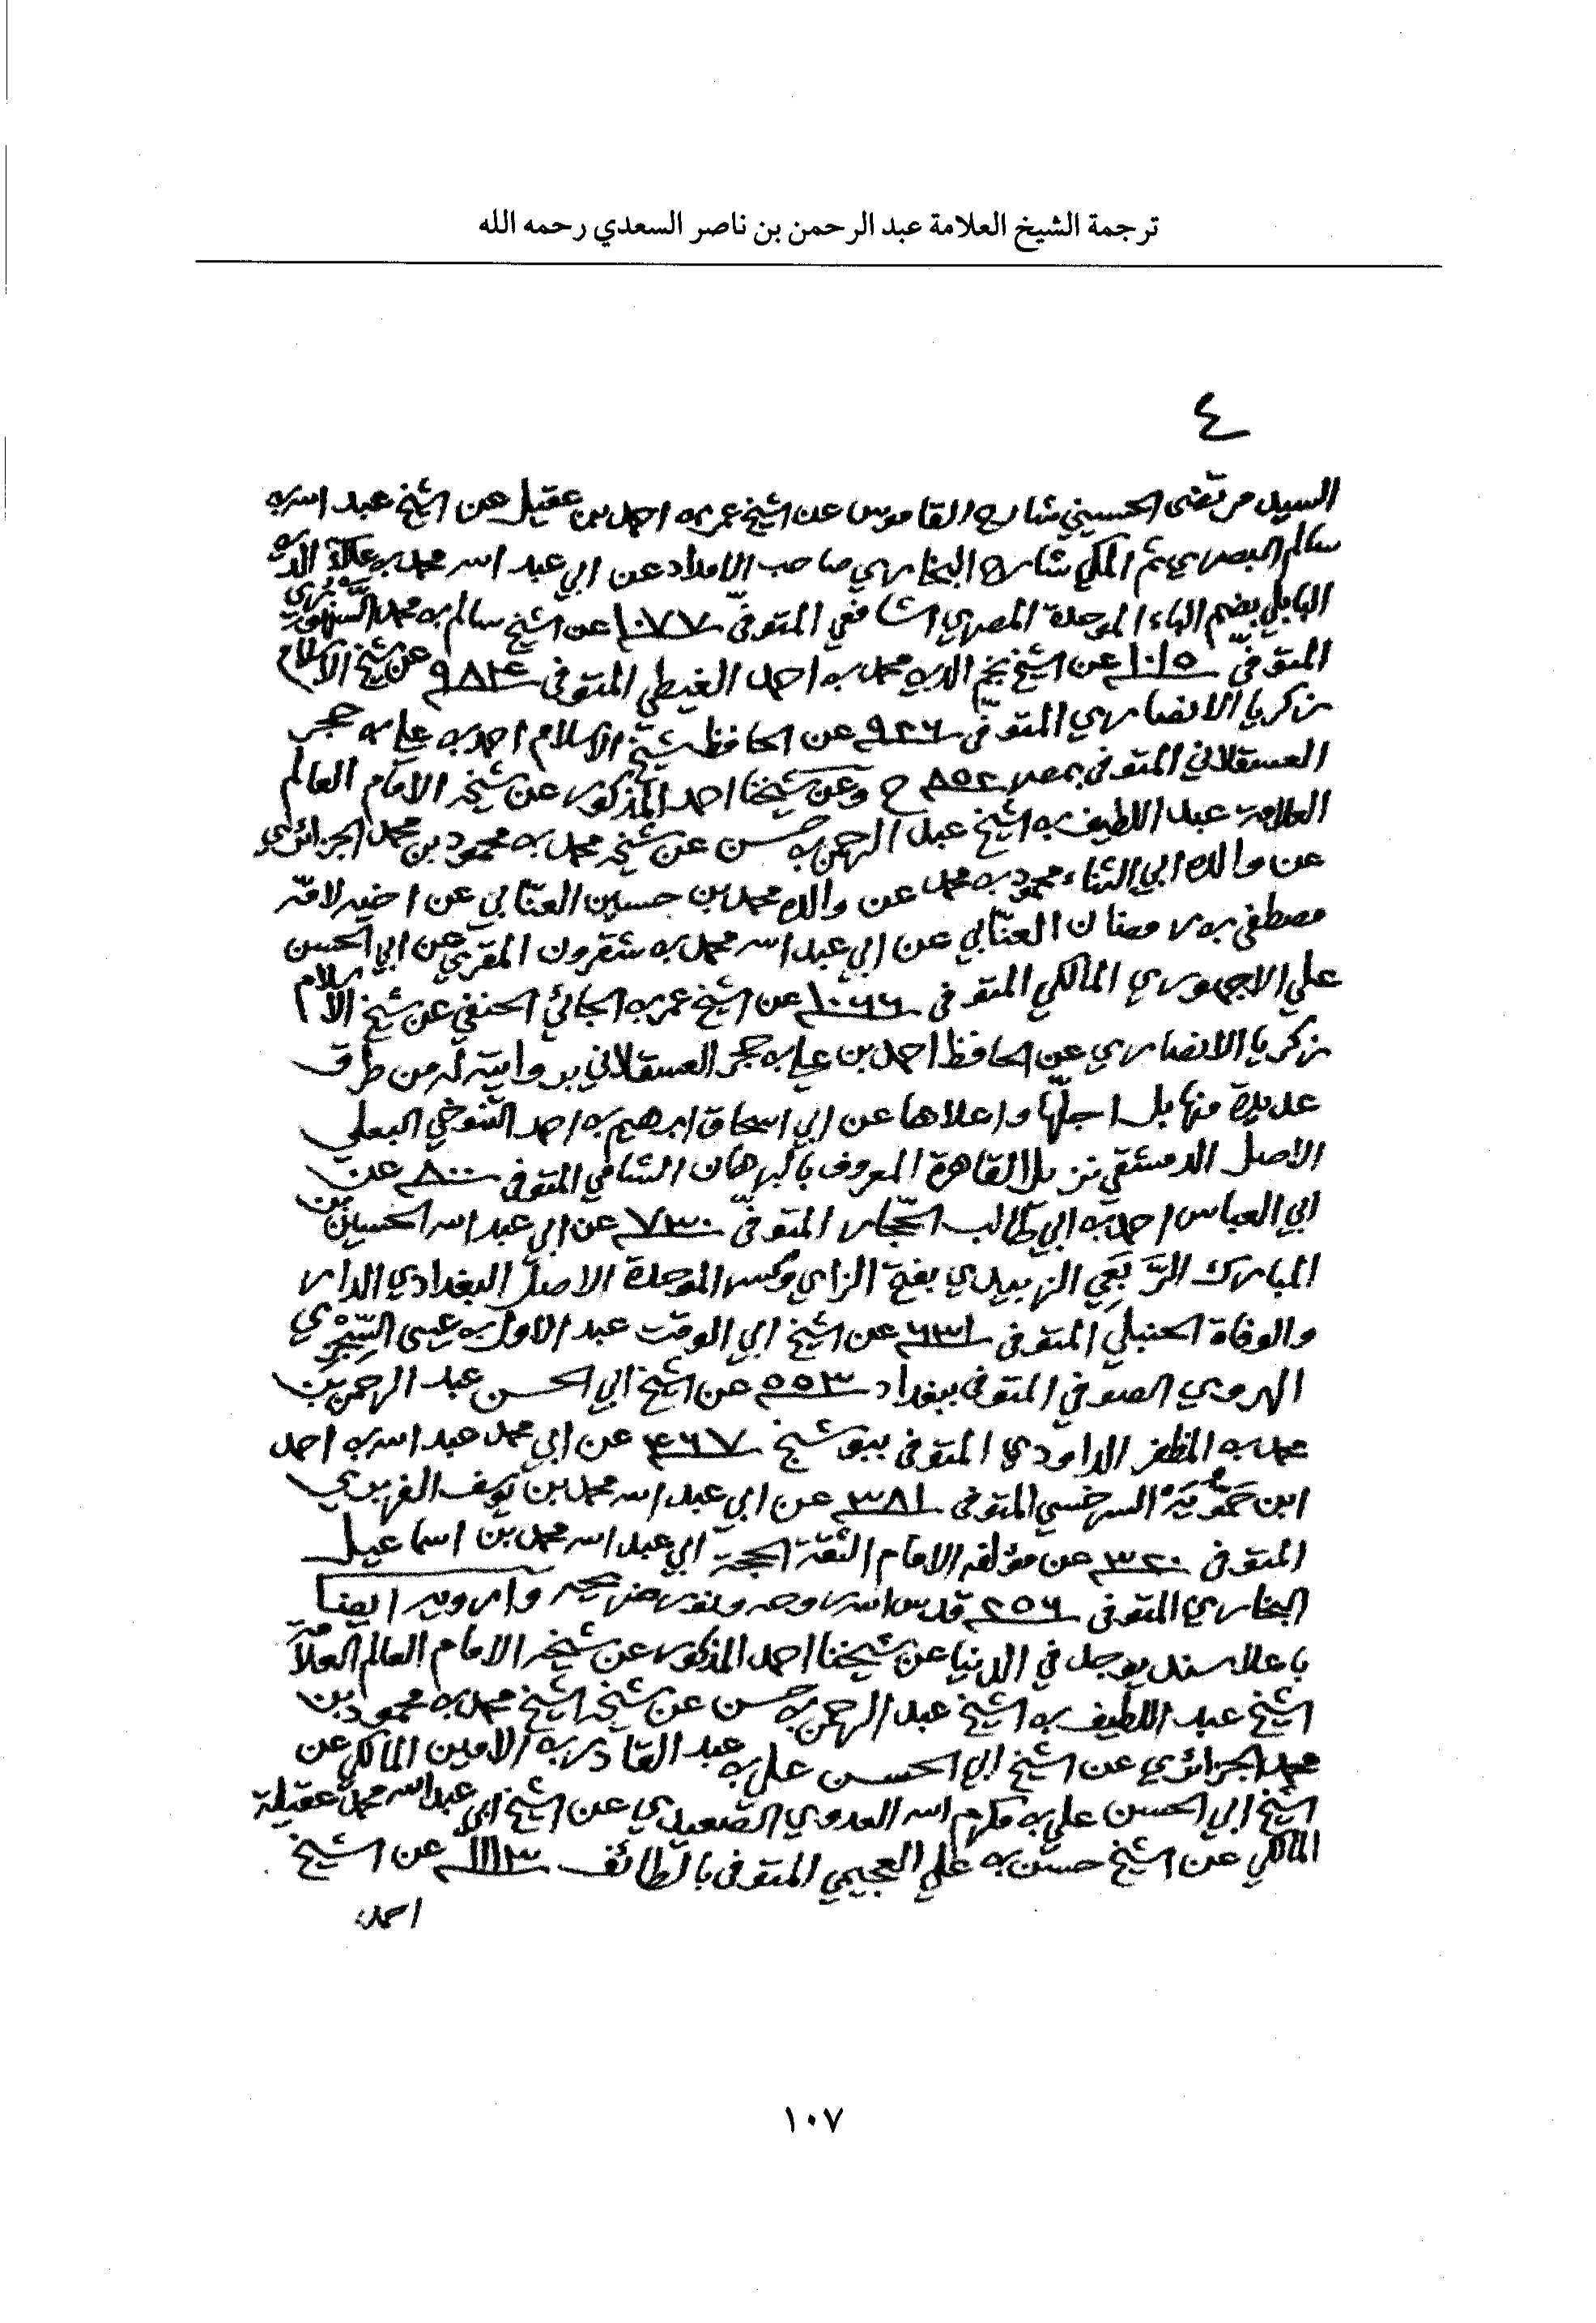 ترجمة الشيخ العلامة عبد الرحمن بن ناصر السعدي رحمه الله
٤
السيد مرتضى الحسيني شارح القاموس عن الشيخ عمر بن احمد بن عقيل عن الشيخ عبد الله بن
سالم البصري ثم المكي شارح البخاري صاحب الامداد عن ابي عبد الله محمد بن علاء الدين
البابلي بضم الباء الموحدة المصري الشافعي المتوفى ١٠٧٧ عن الشيخ سالم بن محمد السنهوري
المتوفى ١٠١٥ عن الشيخ نجم الدين محمد بن احمد الغيطي المتوفى ٩٨٤ عن شيخ الاسلام
زكريا الانصاري المتوفى ٩٢٦ عن الحافظ شيخ الاسلام احمد بن علي بن حجر
العسقلاني المتوفى بمصر ٨٥٢ ح وعن شيخنا احمد المذكور عن شيخه الامام العالم
العلامة عبد اللطيف بن الشيخ عبد الرحمن بن حسن عن شيخه محمد بن محمود بن محمد الجزائري
عن والده ابي الثناء محمود بن محمد عن والده محمد بن حسين العنّابي عن اخيه لامّه
مصطفى بن رمضان العنّابي عن ابي عبد الله محمد بن شقرون المقري عن ابي الحسن
علي الاجهوري المالكي المتوفى ١٠٦٦ عن الشيخ عمر بن الجائي الحنفي عن شيخ الاسلام
زكريا الانصاري عن الحافظ احمد بن علي بن حجر العسقلاني بروايته له من طرق
عديدة منها بل اجلّها واعلاها عن ابي اسحاق ابرهيم بن احمد التنوخي البعلي
الاصل الدمشقي نزيل القاهرة المعروف بالبرهان الشامي المتوفى ٨٠٠ عن
ابي العباس احمد بن ابي طالب الحجّار المتوفّى ٧٣٠ عن ابي عبد الله الحسين بن
المبارك الرَّبَعِي الزبيدي بفتح الزاي وكسر الموحدة الاصل البغدادي الدار
والوفاة الحنبلي المتوفى ٦٣١ عن الشيخ ابي الوقت عبد الاول بن عيسى السِّجْزي
الهروي الصوفي المتوفى ببغداد ٥٥٣ عن الشيخ ابي الحسن عبد الرحمن بن
محمد بن المظفر الداودي المتوفى ببوشنج ٤٦٧ عن ابي محمد عبد الله بن احمد
ابن حَمُّويَهْ السرخسي المتوفى ٣٨١ عن ابي عبد الله محمد بن يوسف الفربري
المتوفى ٣٢٠ عن مؤلفه الامام الثقة الحجة ابي عبد الله محمد بن اسماعيل
البخاري المتوفى ٢٥٦ قدس الله روحه ونور ضريحه وارويه ايضا
باعلا سند يوجد في الدنيا عن شيخنا احمد المذكور عن شيخه الامام العالم العلامة
الشيخ عبد اللطيف بن الشيخ عبد الرحمن بن حسن عن شيخه الشيخ محمد بن محمود بن
محمد الجزائري عن الشيخ ابي الحسن علي بن عبد القادر بن الامين المالكي عن
الشيخ ابي الحسن علي بن مكرم الله العدوي الصعيدي عن الشيخ ابي عبد الله محمد عقيلة
المالكي عن الشيخ حسن بن علي العجيمي المتوفى بالطائف ١١١٣ عن الشيخ
احمد
١٠٧